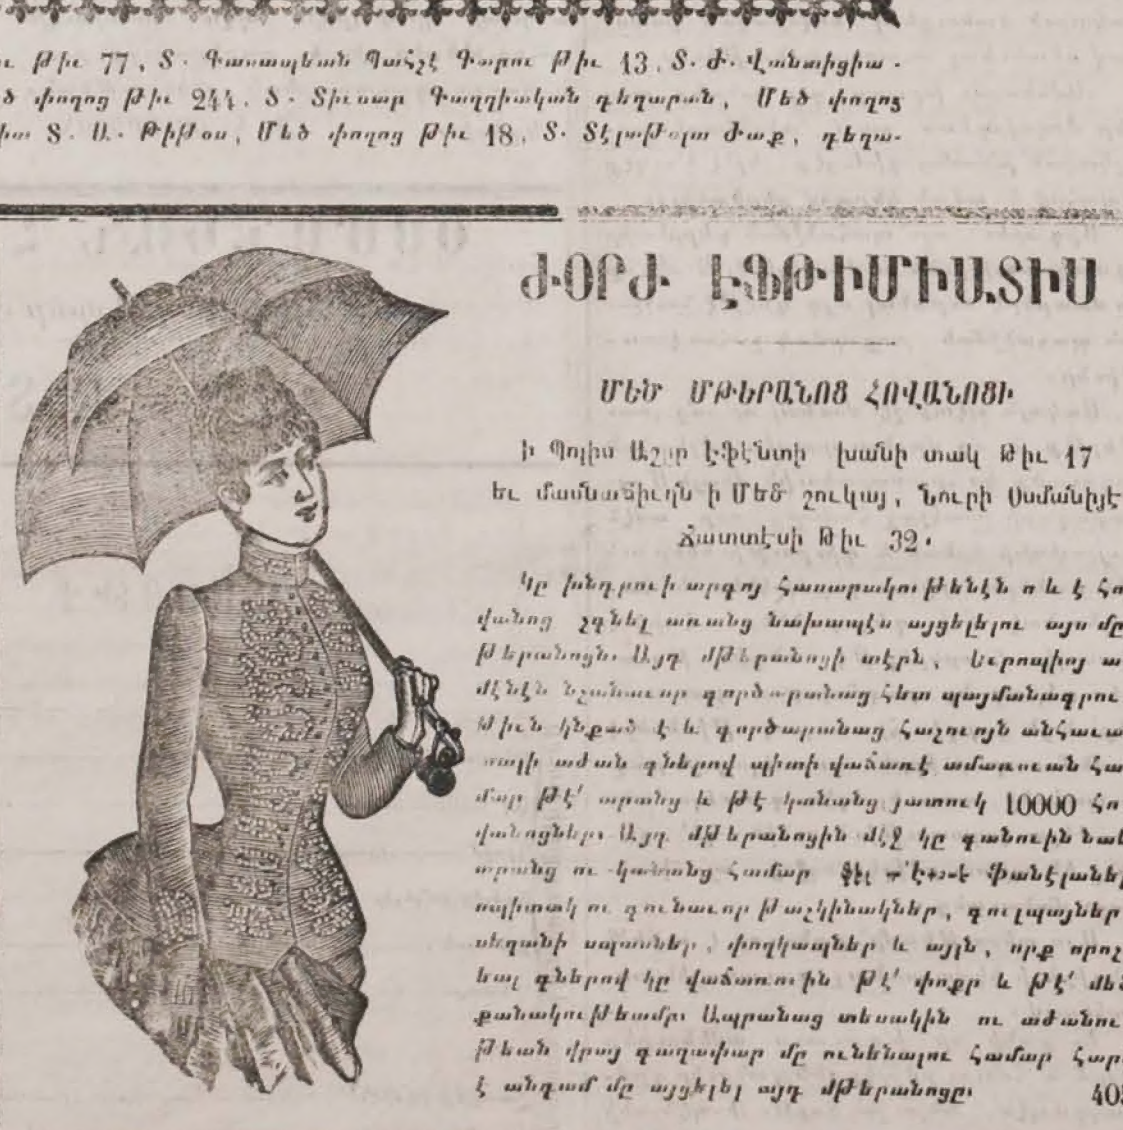 թիւ 77, Տ. Գասապեան Պահչէ Գարու թիւ 13, Տ. Ժ. Վանտիցիա.
փողոց թիւ 244, Տ. Տիւսար Գաղղիական դեղարան, Մեծ փողոց
Տ. Ա. Թիթօս, Մեծ փողոց թիւ 18, Տ. Տէլլա Ժաք, դեղա-
ԺՕՐԺ ԷՖԹԻՄԻԱՏԻՍ
ՄԵԾ ՄԹԵՐԱՆՈՑ ՀՈՎԱՆՈՑԻ
ի Պոլիս Աշըր Էֆէնտի խանի տակ Թիւ 17
եւ մասնաճիւղն ի Մեծ շուկայ, Նուրի Օսմանիյէ
Ճատտէսի Թիւ 32.
Կը խնդրուի արգոյ հասարակութենէն ո և է հո
վանոց չգնել առանց նախապէս այցելելու այս մը
թերանոցն. Այդ մթերանոցի տէրն, Եւրոպիոյ ա
մէնէն նշանաւոր գործարանաց հետ պայմանագրու
թիւն կնքած է և գործարանաց հաշուոյն անհաւա
տալի աժան գներով պիտի վաճառէ ամառուան հա
մար թէ՛ արանց և թէ կանանց յատուկ 10000 հո
վանոցներ. Այդ մթերանոցին մէջ կը գտնուին նաև
արանց ու կանանց համար ֆիլ ֆանէլաներ
սպիտակ ու գունաւոր թաշկինակներ, գուլպայներ
սեղանի սպասներ, փողկապներ և այլն, որք որոշ
եալ գներով կը վաճառուին թէ՛ փոքր և թէ՛ մեծ
քանակութեամբ. Ապրանաց տեսակին ու աժանու
թեան վրայ գաղափար մը ունենալու համար հար
է անգամ մը այցելել այդ մթերանոցը.